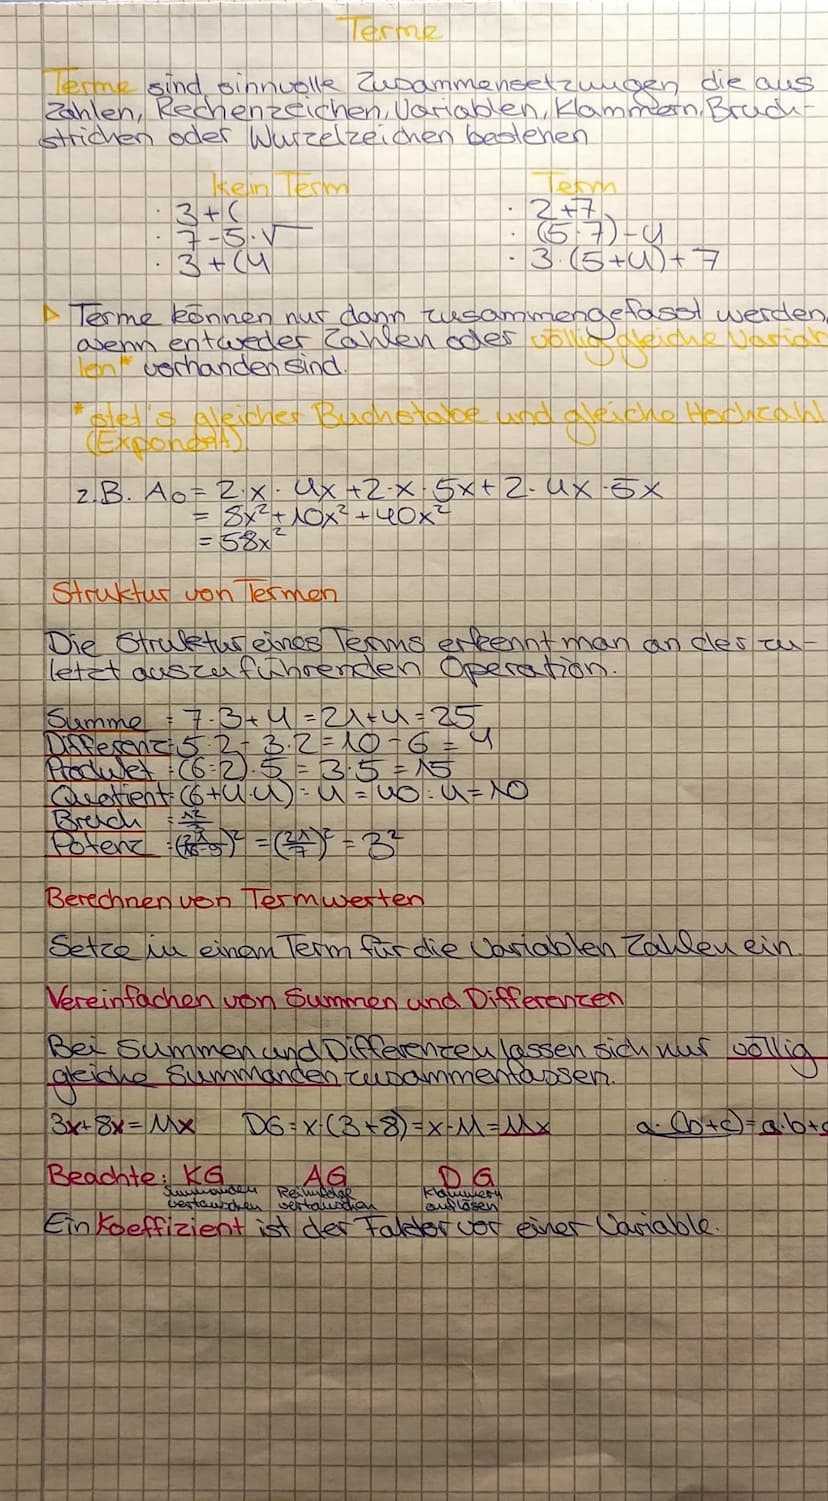 Terme
Terme sind sinnvolle Zusammensetzungen die aus
Zahlen, Rechenzeichen, Variablen, Klammern, Bruch-
strichen oder Wurzelzeichen bestehen
kein Term Term
· 3+( · 2+7
· 7-5·√ · (5·7)-4
· 3+(4 · 3·(5+4)+7
▷ Terme können nur dann zusammengefasst werden,
wenn entweder Zahlen oder völlig gleiche Variab
len* vorhanden sind.
*stet's gleicher Buchstabe und gleiche Hochzahl
(Expondet)
z.B. Ao = 2·x·4x+2·x·5x+2·4x·5x
= 8x²+10x²+40x²
= 58x²
Struktur von Termen
Die Struktur eines Terms erkennt man an der zu-
letzt auszuführenden Operation.
Summe : 7·3+4=21+4=25
Differenz: 5·2-3·2=10-6=4
Produkt : (6:2)·5=3·5=15
Quotient: (6+4·4):4=40:4=10
Bruch :
Potenz : = (21/7)² = 3²
Berechnen von Termwerten
Setze in einem Term für die Variablen Zahlen ein.
Vereinfachen von Summen und Differenzen
Bei Summen und Differenzen lassen sich nur völlig
gleiche Summanden zusammenfassen.
3x+8x=11x DG: x·(3+8)=x·11=11x a·(b+c)=a·b+
Beachte: KG AG DG
Summanden Reihnfolge Klammern
vertauschen vertauschen auflösen
Ein Koeffizient ist der Faktor vor einer Variable.